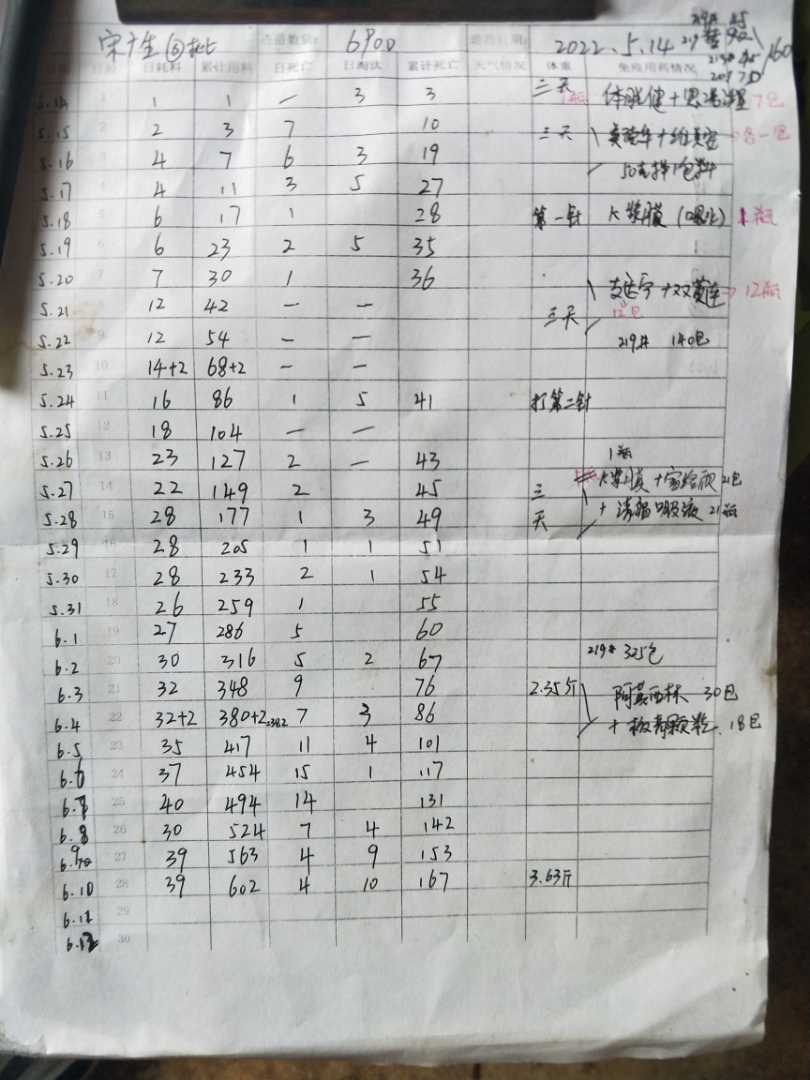 219# 45
宋广生 ⑥批 进苗数量: 6900 进苗日期: 2022.5.14 219 替 90 160
219# 45
209 70
日龄 日耗料 累计用料 日死亡 日淘汰 累计死亡 天气情况 体重 免疫用药情况
5.14 1 1 1 — 3 3 三天 7包
5.15 2 2 3 7 10 三天 各一包
5.16 4 7 6 3 19
5.17 4 4 11 3 5 27
5.18 5 6 17 1 28 第一针 K 浆膜 1瓶
5.19 6 6 23 2 5 35
5.20 7 7 30 1 36 +双黄连 12瓶
5.21 12 42 — — 三天 12包
5.22 9 12 54 — — 219# 140包
5.23 10 14+2 68+2 — —
5.24 11 16 86 1 5 41 打第二针
5.25 12 18 104 — —
5.26 13 23 127 2 — 43 1瓶
5.27 14 22 149 2 45 三 21包
5.28 15 28 177 1 3 49 天 21瓶
5.29 16 28 205 1 1 51
5.30 17 28 233 2 1 54
5.31 18 26 259 1 55
6.1 19 27 286 5 60
6.2 20 30 316 5 2 67 219# 325包
6.3 21 32 348 9 76 2.35斤 阿莫西林 30包
6.4 22 32+2 380+2 382 7 3 86 +板青颗粒 18包
6.5 23 35 417 11 4 101
6.6 24 37 454 15 1 117
6.7 25 40 494 14 131
6.8 26 30 524 7 4 142
6.9 27 39 563 4 9 153
6.10 28 39 602 4 10 167 3.63斤
6.11 29
6.12 30